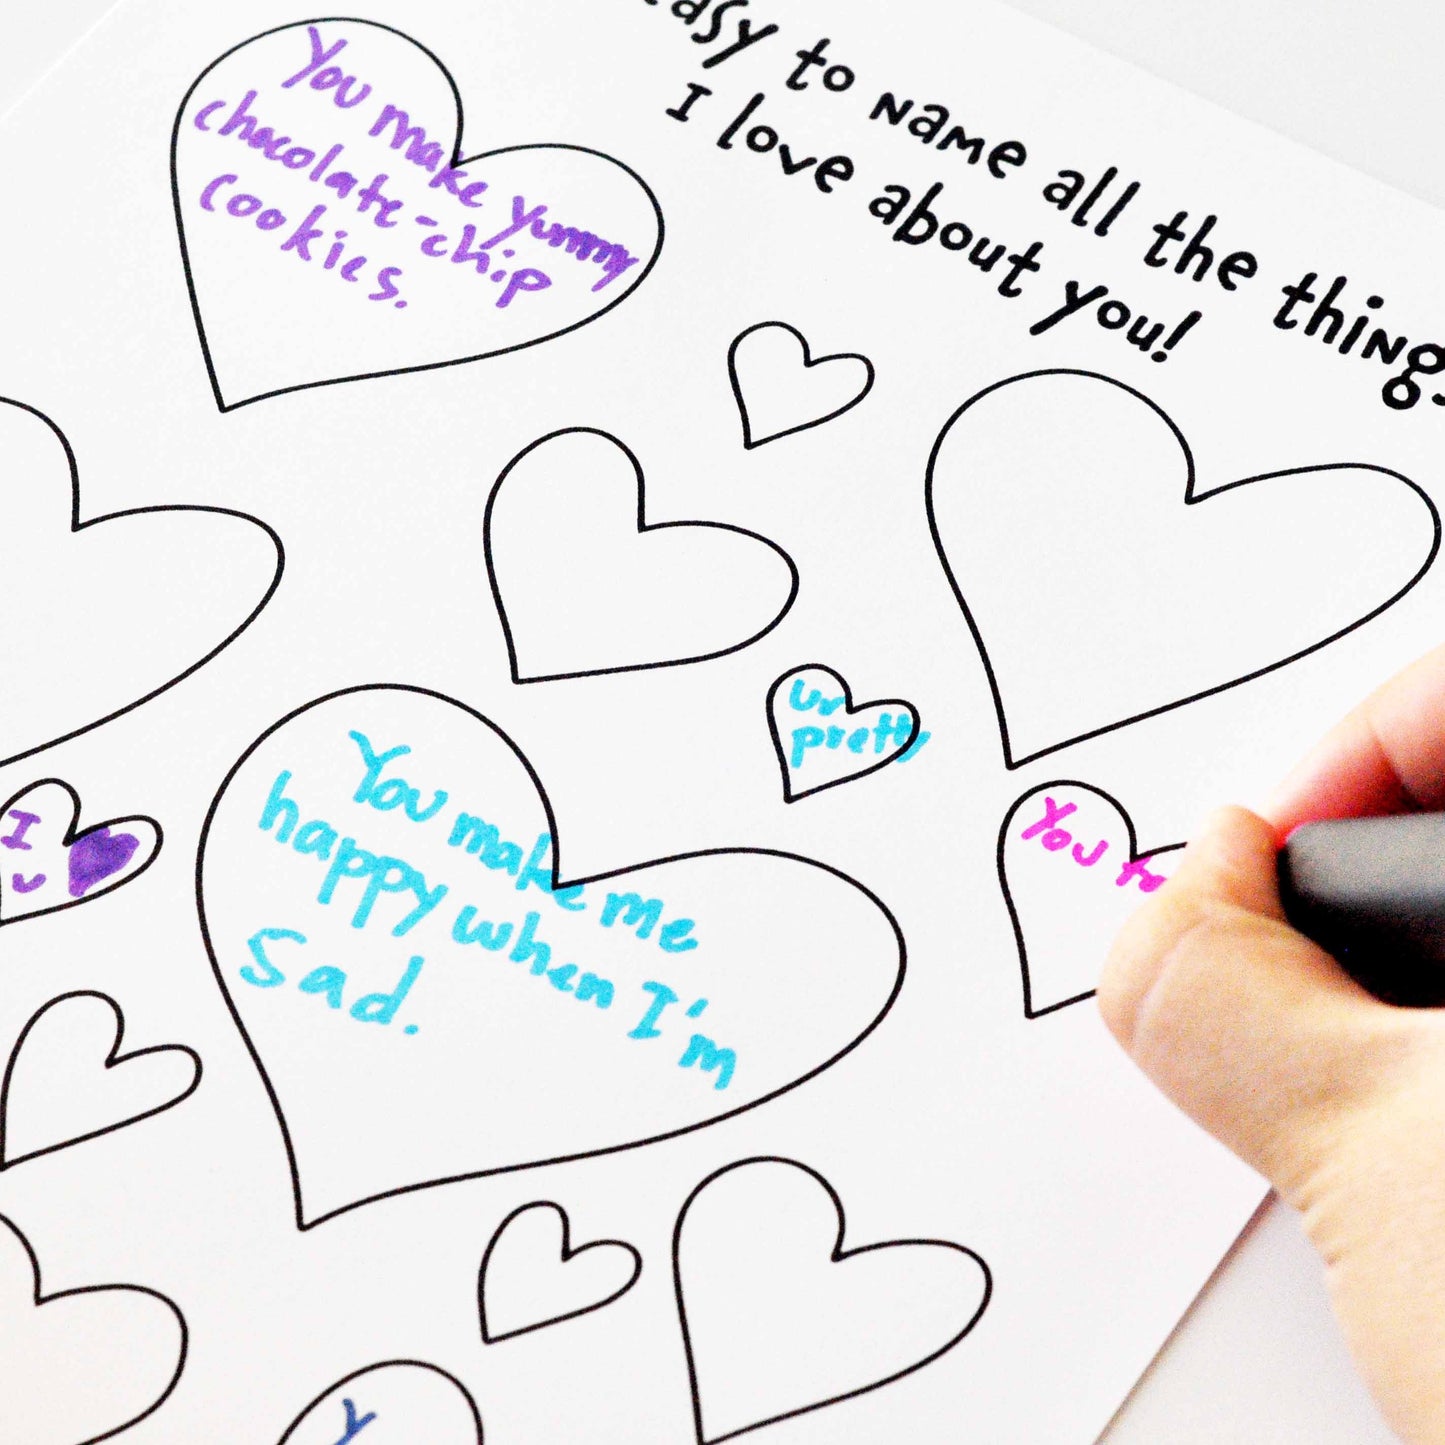 to name all the things
I love about you!
You make yummy
chocolate-chip
cookies.
ur
pretty
You make me
happy when I'm
sad.
I
u
You
Y